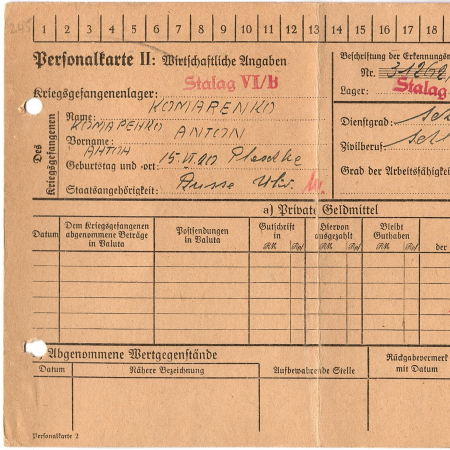 1 2 3 4 5 6 7 8 9 10 11 12 13 14 15 16 17 18
Personalkarte II: Wirtschaftliche Angaben
Kriegsgefangenenlager: Stalag VI/B
Des Kriegsgefangenen
Name: KOMARENKO
КОМАРЕНКО
Vorname: ANTON
АНТОН
Geburtstag und -ort: 15.VI.
Staatsangehörigkeit: Russe Ukr.
Beschriftung der Erkennungsm
Nr. 31262
Lager: Stalag
Dienstgrad:
Zivilberuf:
Grad der Arbeitsfähigkeit
a) Private Geldmittel
Datum
Dem Kriegsgefangenen abgenommene Beträge in Valuta
Postsendungen in Valuta
Gutschrift in
RM Rpf
Hiervon ausgezahlt
RM Rpf
Bleibt Guthaben
RM Rpf
der
b) Abgenommene Wertgegenstände
Datum
Nähere Bezeichnung
Aufbewahrende Stelle
Rückgabevermerk mit Datum
Personalkarte 2